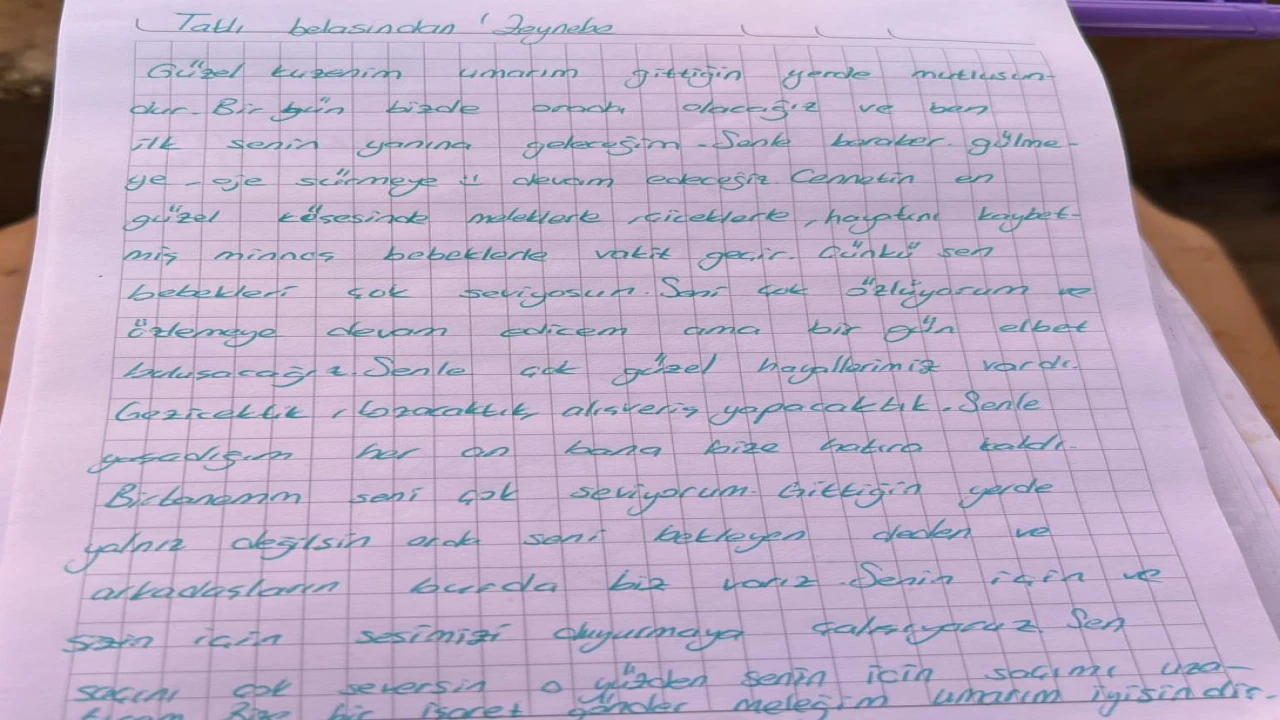 Tatlı belasından Zeynebe
Güzel kuzenim umarım gittiğin yerde mutlusun-
dur. Bir gün bizde orada olacağız ve ben
ilk senin yanına geleceğim. Senle beraber gülme-
ye - eje sürmeye :) devam edeceğiz. Cennetin en
güzel köşesinde meleklerle, çiceklerle, hayatını kaybet-
miş minnos bebeklerle vakit geçir. Çünkü sen
bebekleri çok seviyosun. Seni çok özlüyorum ve
özlemeye devam edicem ama bir gün elbet
bulusacağız. Senle çok güzel hayallerimiz vardı.
Gezicektik, tozacaktık, alısveriş yapacaktık. Senle
yaşadığım her an bana bize hatıra kaldı.
Bictanemm seni çok seviyorum. Gittiğin yerde
yalnız değilsin orda seni bekleyen deden ve
arkadaşların burda biz varız. Senin için ve
sizin için sesimizi duyurmaya çalısıyoruz. Sen
saçını çok seversin o yüzden senin için saçımı uza-
Bize bir işaret gönder meleğim umarım iyisindir.